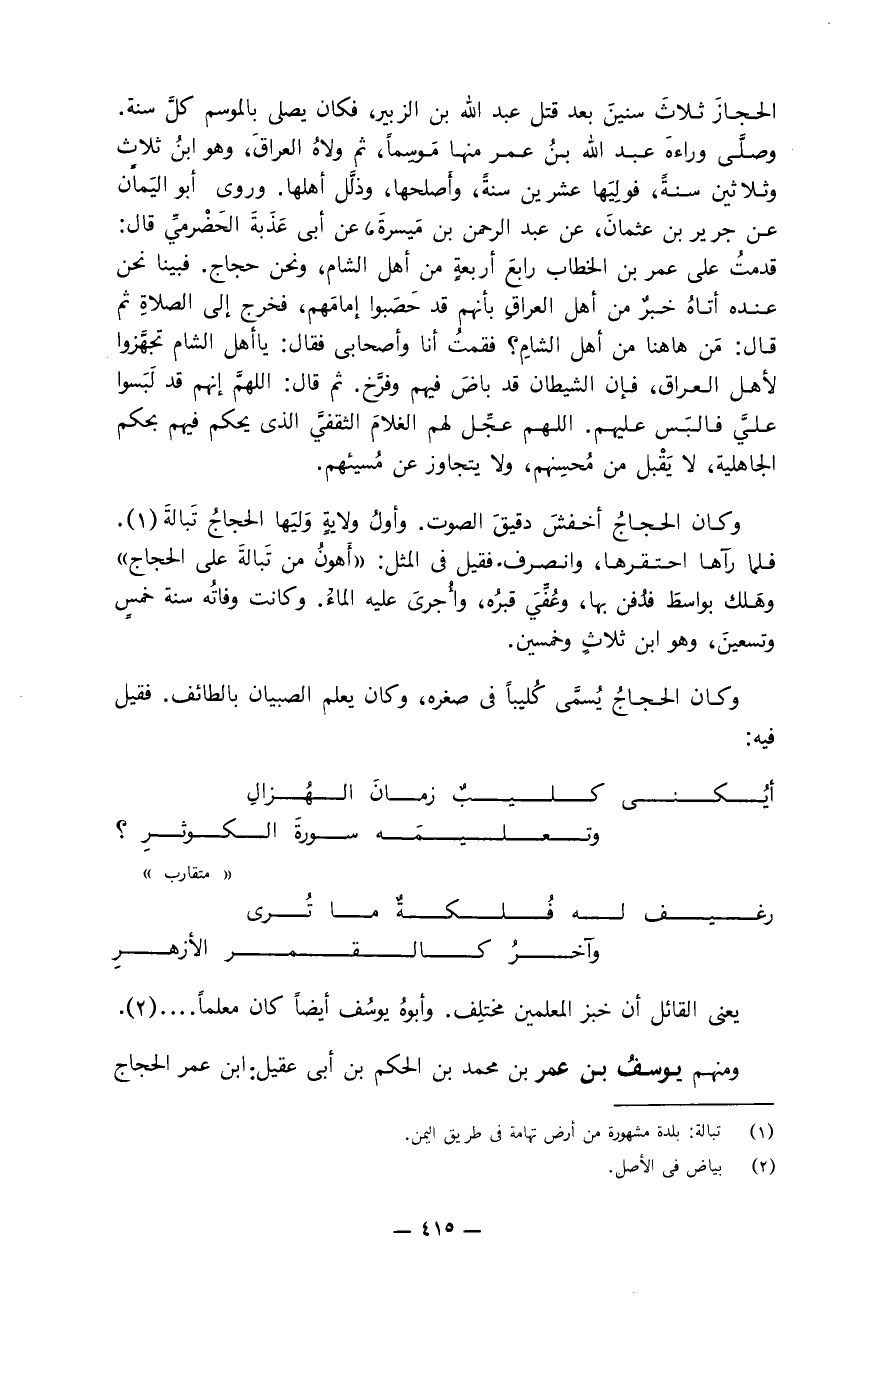 الحجازَ ثلاثَ سنينَ بعد قتل عبد الله بن الزبير، فكان يصلى بالموسم كلَّ سنة.
وصلَّى وراءهَ عبد الله بنُ عمر منها مَوسِماً، ثم ولاهُ العراقَ، وهو ابنُ ثلاثٍ
وثلاثين سنةً، فولِيَها عشرين سنةً، وأَصلحها، وذلَّل أهلها. وروى أبو اليَمان
عن جرير بن عثمانَ، عن عبد الرحمن بن مَيسرةَ، عن أبى عَذَبةَ الحَضْرميِّ قال:
قدمتُ على عمر بن الخطاب رابعَ أربعةٍ من أهل الشام، ونحن حجاج. فبينا نحن
عنده أتاهُ خبرٌ من أهل العراقِ بأنهم قد حَصَبوا إمامَهم، فخرج إلى الصلاةِ ثم
قال: مَن هاهنا من أهل الشامِ؟ فقمتُ أنا وأصحابى فقال: ياأهل الشام تجهَّزوا
لأهل العراق، فإن الشيطان قد باضَ فيهم وفرَّخ. ثم قال: اللهمَّ إنهم قد لَبَسوا
عليَّ فالبَس عليهم. اللهم عجِّل لهم الغلامَ الثقفيَّ الذى يحكم فيهم بحكم
الجاهلية، لا يَقْبل من مُحسِنهم، ولا يتجاوز عن مُسيئهم.
وكان الحجاجُ أخفشَ دقيقَ الصوت. وأولُ ولايةٍ وَليَها الحجاجُ تَبالةَ (١).
فلما رآها احتقرها، وانصرف. فقيل فى المثل: «أَهونُ من تَبالةَ على الحجاج»
وهَلك بواسطَ فدُفن بها، وعُفِّيَ قبرُه، وأُجرىَ عليه الماءُ. وكانت وفاتُه سنة خمسٍ
وتسعينَ، وهو ابن ثلاثٍ وخمسين.
وكان الحجاجُ يُسمَّى كُليباً فى صغره، وكان يعلم الصبيان بالطائف. فقيل
فيه:
أيُكنى كليبٌ زمانَ الهُزالِ
وتعليمَه سورةَ الكوثرِ ؟
« متقارب »
رغيف له فُلكةٌ ما تُرى
وآخرُ كالقمر الأزهرِ
يعنى القائل أن خبز المعلمين مختلِف. وأبوهُ يوسُف أيضاً كان معلماً....(٢).
ومنهم يوسفُ بن عمر بن محمد بن الحكم بن أبى عقيل: ابن عمر الحجاج
(١) تبالة: بلدة مشهورة من أرض تهامة فى طريق اليمن.
(٢) بياض فى الأصل.
— ٤١٥ —